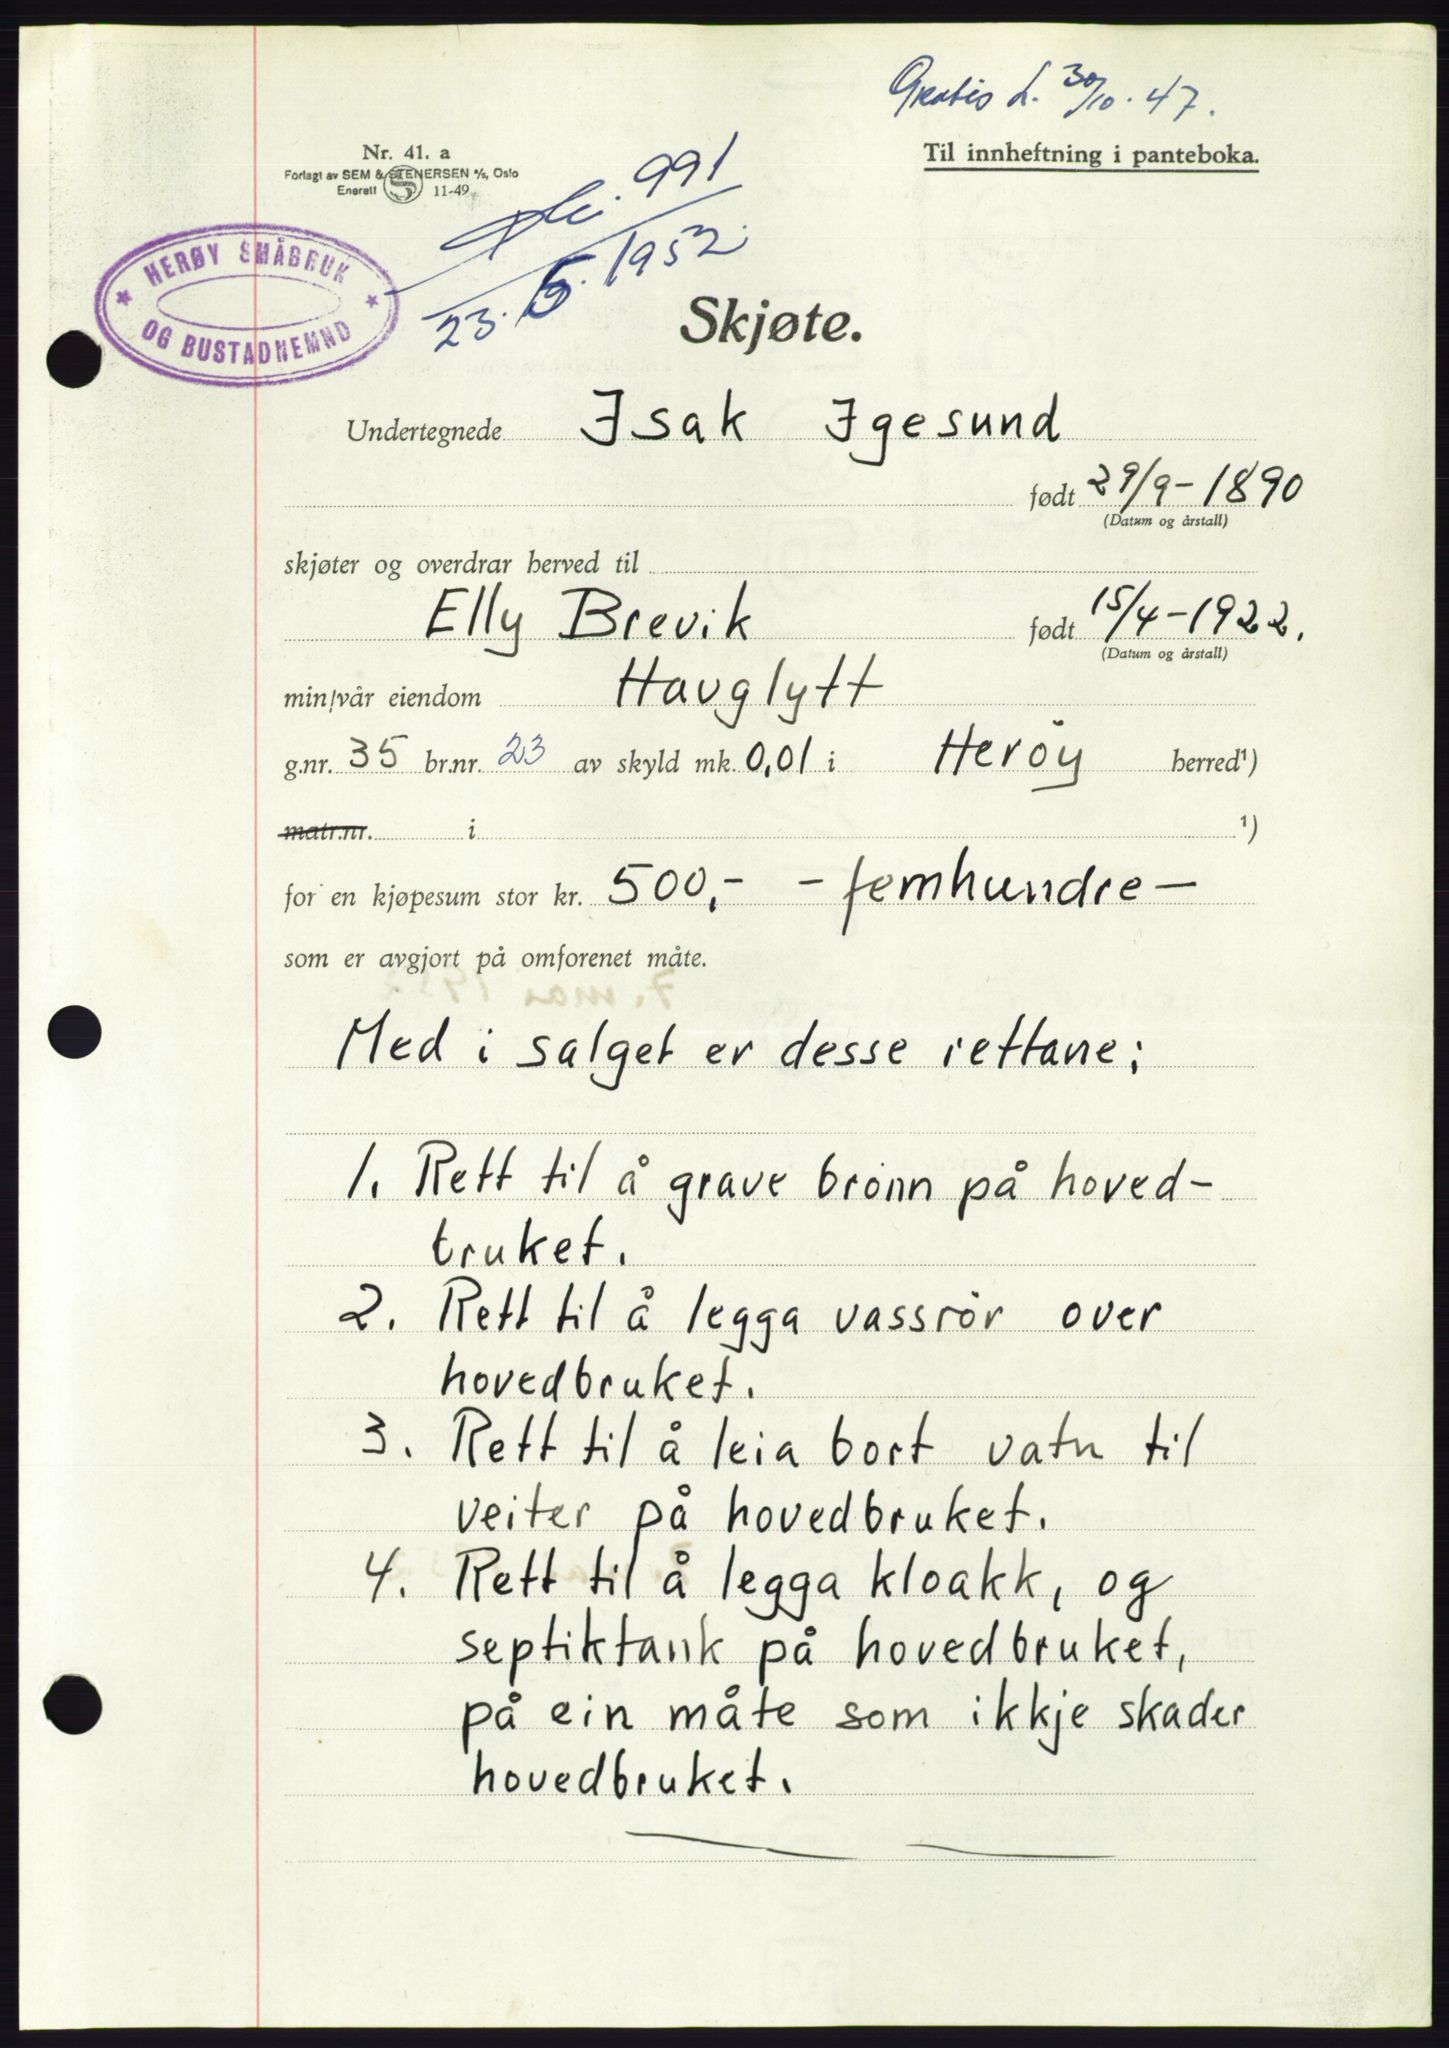 Gratis L. 30/10. 47.
Til innheftning i panteboka.
Nr. 41. a
Forlagt av SEM & STENERSEN A/S, Oslo
Enerett S 11-49
991
23. 5. 1952.
HERØY SMÅBRUK
OG BUSTADNEMND
Skjøte.
Undertegnede Isak Igesund
født 29/9-1890
(Datum og årstall)
skjøter og overdrar herved til
Elly Brevik født 15/4-1922.
(Datum og årstall)
min/vår eiendom Havglytt
g.nr. 35 br.nr. 23 av skyld mk. 0,01 i Herøy herred¹)
matr.nr. i ¹)
for en kjøpesum stor kr. 500,- - femhundre -
som er avgjort på omforenet måte.
Med i salget er desse rettane;
1. Rett til å grave brønn på hoved-
bruket.
2. Rett til å legga vassrör over
hovedbruket.
3. Rett til å leia bort vatn til
veiter på hovedbruket.
4. Rett til å legga kloakk, og
septiktank på hovedbruket,
på ein måte som ikkje skader
hovedbruket.